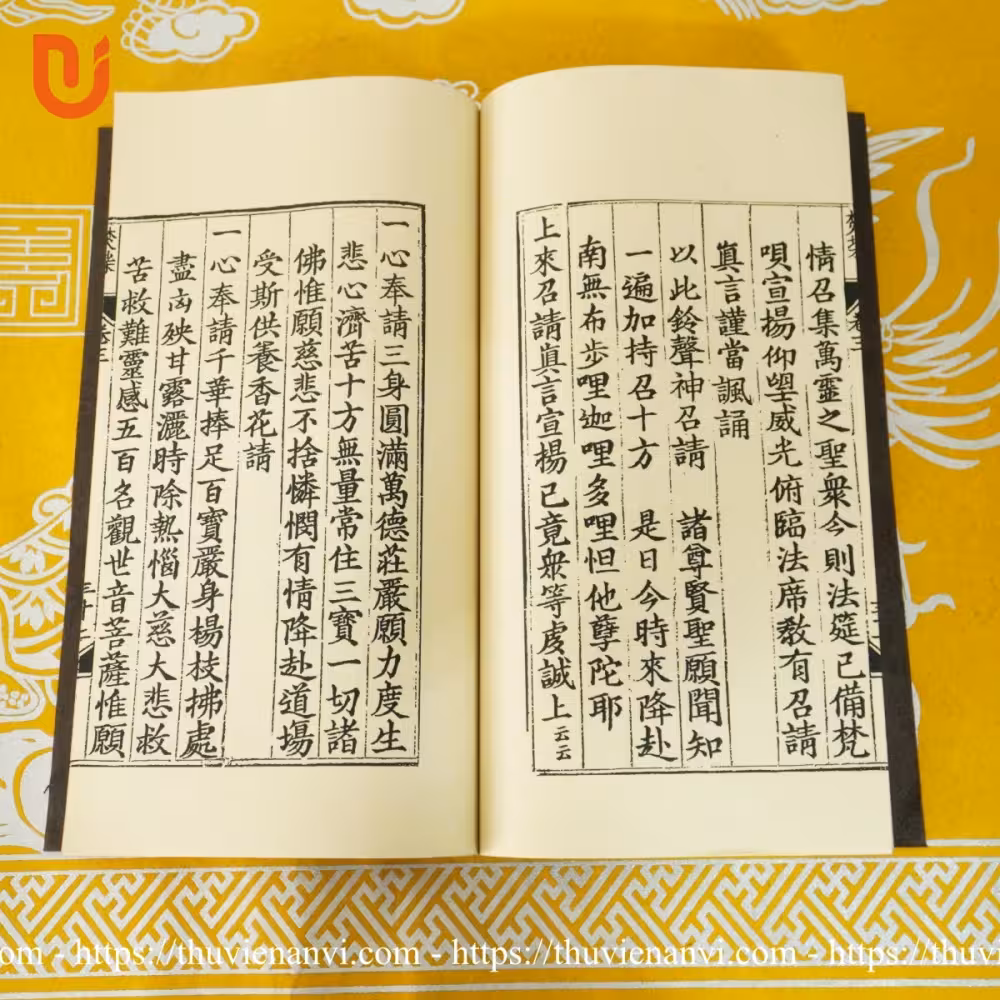 情召集萬靈之聖衆今則法筵已備梵
唄宣揚仰朢威光俯臨法席敎有召請
眞言謹當諷誦
以此鈴聲神召請 諸尊賢聖願聞知
一遍加持召十方 是日今時來降赴
南無布步哩迦哩多哩怛他孽陀耶
上來召請眞言宣揚已竟衆等虔誠上云云
一心奉請三身圓滿萬德莊嚴願力度生
悲心濟苦十方無量常住三寶一切諸
佛惟願慈悲不捨憐憫有情降赴道場
受斯供養香花請
一心奉請千華捧足百寶嚴身楊枝拂處
盡 殃甘露灑時除熱惱大慈大悲救
苦救難靈感五百名觀世音菩薩惟願
卷三
卷三
.com - https://thuvienanvi.com - https://thuvienanvi.com - https://thuvienanvi.com